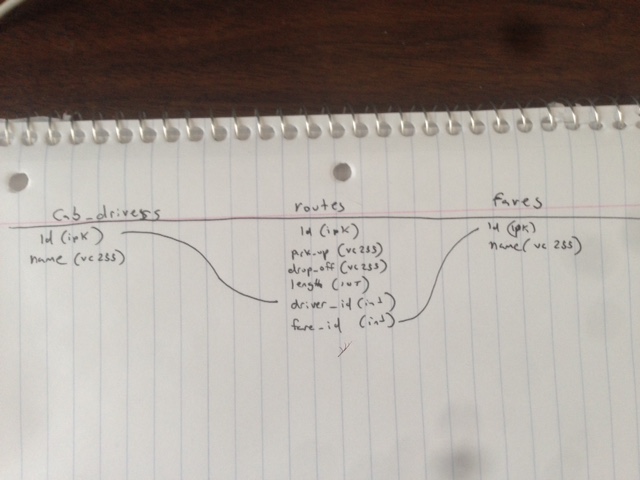 cab_drivers
id (ipk)
name (vc255)
routes
id (ipk)
pick-up (vc255)
drop-off (vc255)
length (int)
driver_id (int)
fare_id (int)
fares
id (ipk)
name (vc255)